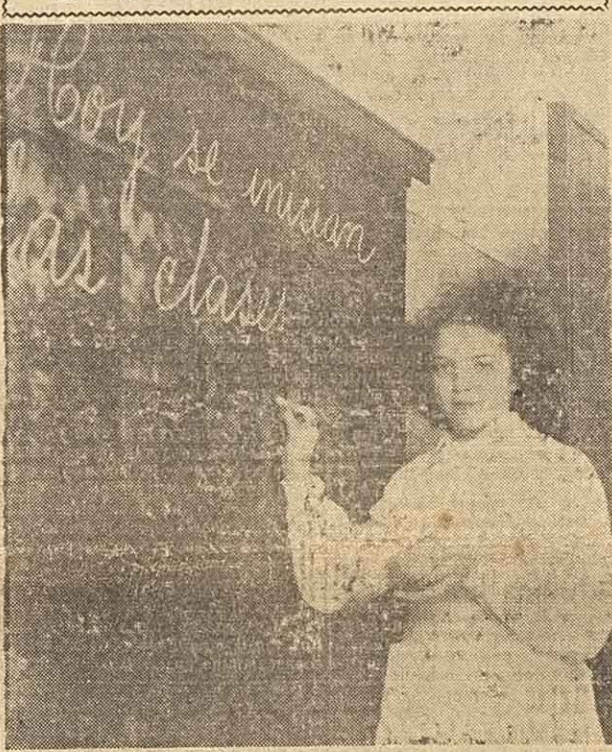 Hoy se inician
las clases